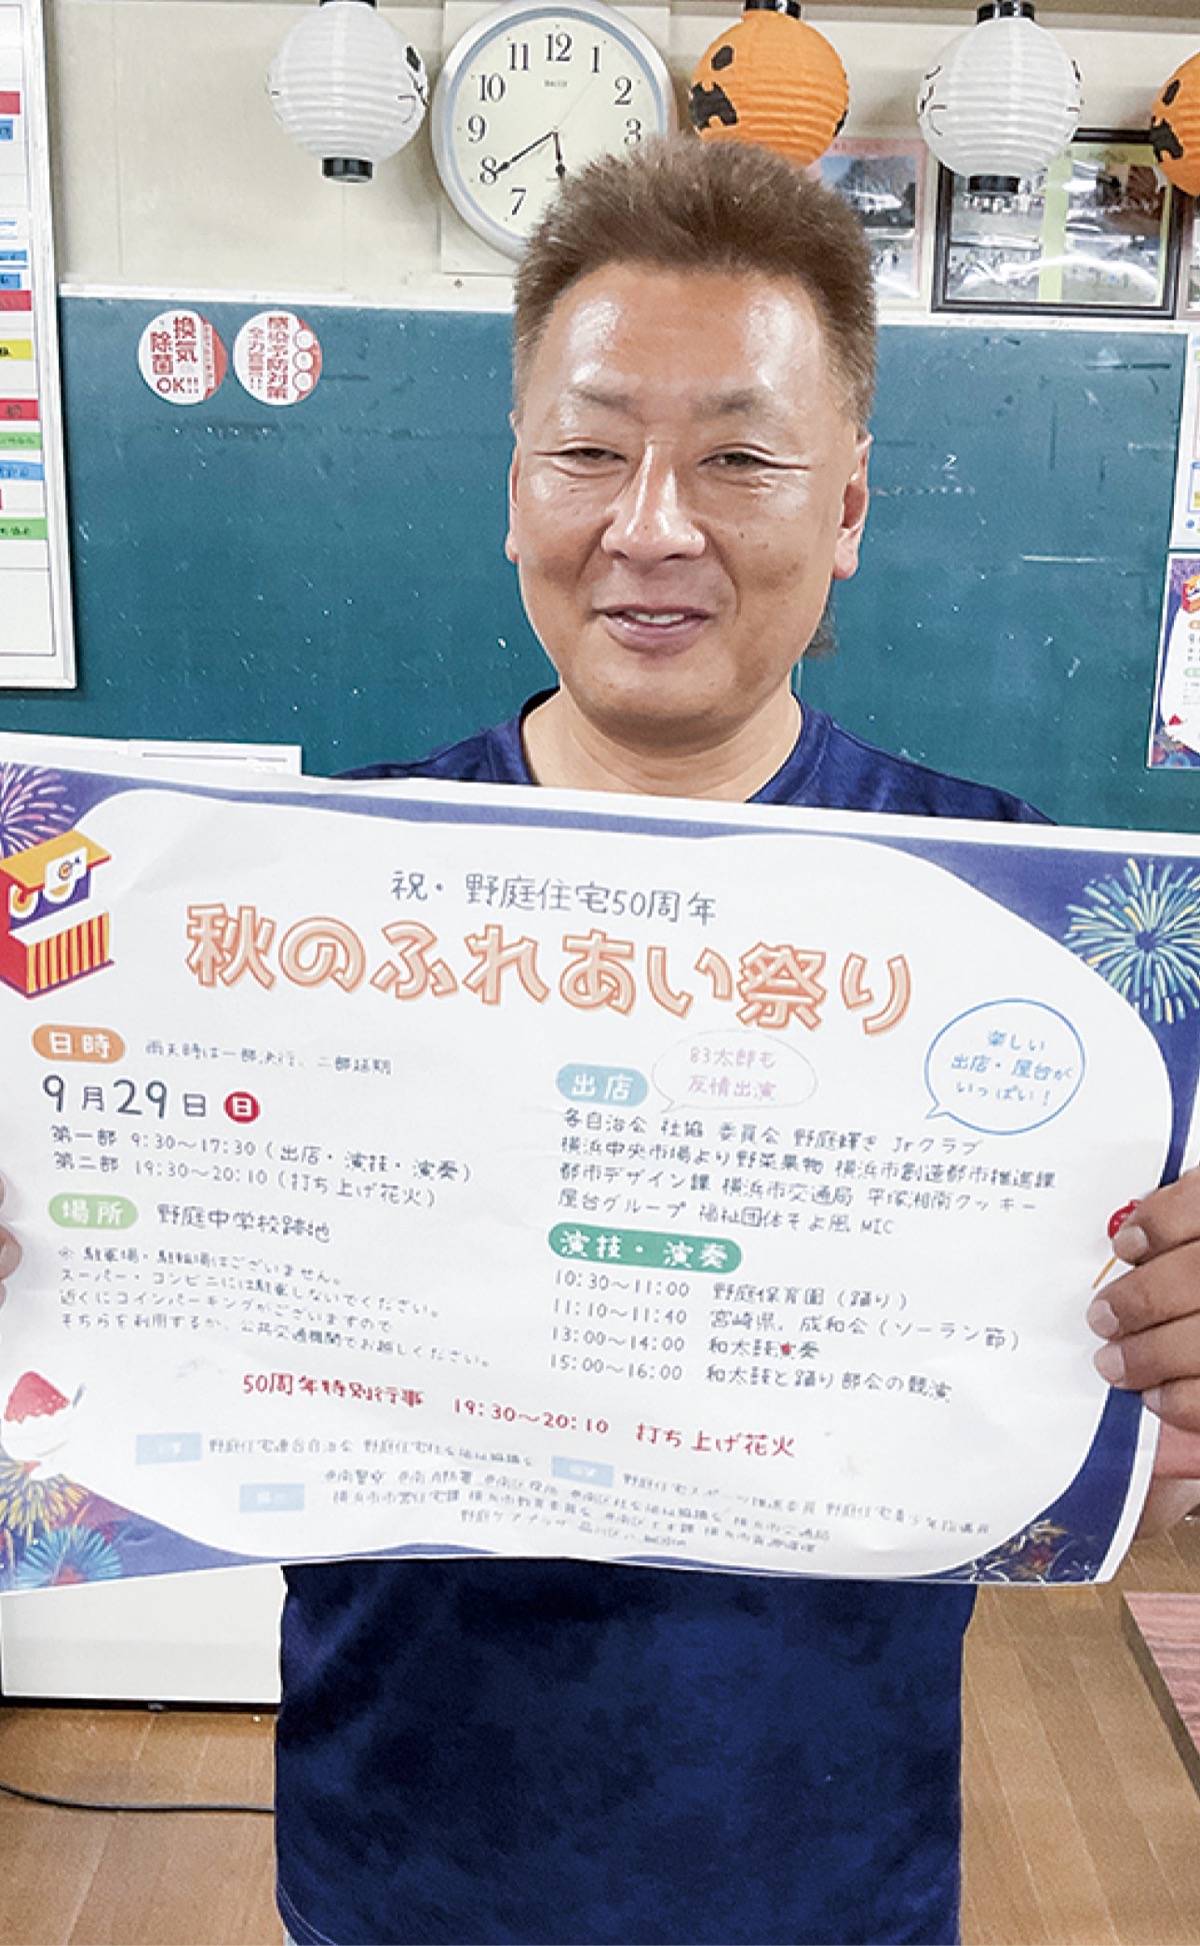 12
11
1
10
2
9
3
8
7
換気
除菌
OK!!
感染予防対策
祝・野庭住宅50周年
秋のふれあい祭り
日時 雨天時は一部決行、二部延期
9月29日 日
第一部 9:30〜17:30(出店・演技・演奏)
第二部 19:30〜20:10(打ち上げ花火)
場所 野庭中学校跡地
※ 駐車場・駐輪場はございません。
スーパー・コンビニには駐車しないでください。
近くにコインパーキングがございますので
そちらを利用するか、公共交通機関でお越しください。
83太郎も
友情出演
楽しい
出店・屋台が
いっぱい!
出店
各自治会 社協 委員会 野庭輝き Jrクラブ
横浜中央市場より野菜果物 横浜市創造都市推進課
都市デザイン課 横浜市交通局 平塚湘南クッキー
屋台グループ 福祉団体そよ風 MIC
演技・演奏
10:30〜11:00 野庭保育園(踊り)
11:10〜11:40 宮崎県、成和会(ソーラン節)
13:00〜14:00 和太鼓演奏
15:00〜16:00 和太鼓と踊り部会の競演
50周年特別行事 19:30〜20:10 打ち上げ花火
野庭住宅連合自治会 野庭住宅社会福祉協議会
野庭住宅スポーツ推進委員 野庭住宅青少年指導員